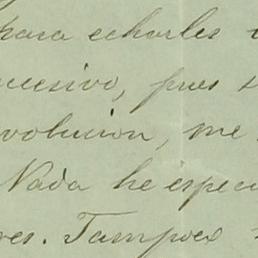 para echarles
cesivo, pues
volucion, me
Nada he espec
res. Tampoco